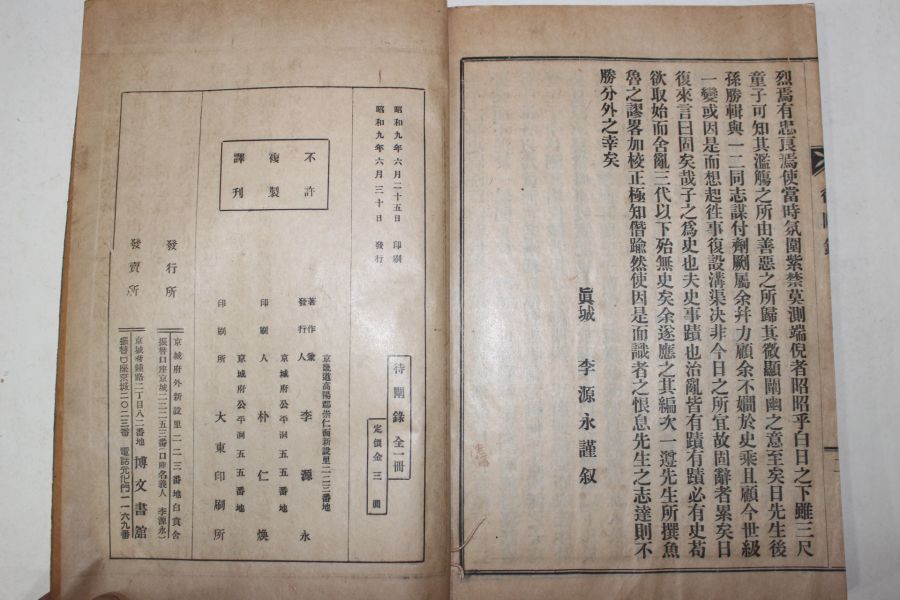 烈焉有忠良焉使當時氛圍紫禁莫測端倪者昭昭乎白日之下雖三尺
童子可知其濫觴之所由善惡之所歸其微顯闡幽之意至矣日先生後
孫勝輯與一二同志謀付劑劂屬余幷力顧余不嫺於史乘且顧今世級
一變或因是而想起徃事復設溝渠决非今日之所宜故固辭者累矣日
復來言曰固矣哉子之爲史也夫史事蹟也治亂皆有蹟有蹟必有史苟
欲取始而舍亂三代以下殆無史矣余遂應之其編次一遵先生所撰魚
魯之謬畧加校正極知僭踰然使因是而識者之恨息先生之志達則不
勝分外之幸矣
眞城 李源永謹叙
待闡錄 全一冊
定價金三圓
昭和九年六月二十五日 印刷
昭和九年六月三十日 發行
不許
複製
譯刊
京畿道高陽郡崇仁面新設里二二三番地
著作兼
發行人 李源永
京城府公平洞五五番地
印刷人 朴仁煥
京城府公平洞五五番地
印刷所 大東印刷所
發行所
京城府外新設里二二三番地 白賁舍
振替口座京城二二二五三番(口座名義人 李源永)
發賣所
京城府鍾路二丁目八二番地 博文書館
振替口座京城二〇二三番 電話光化門一一六九番